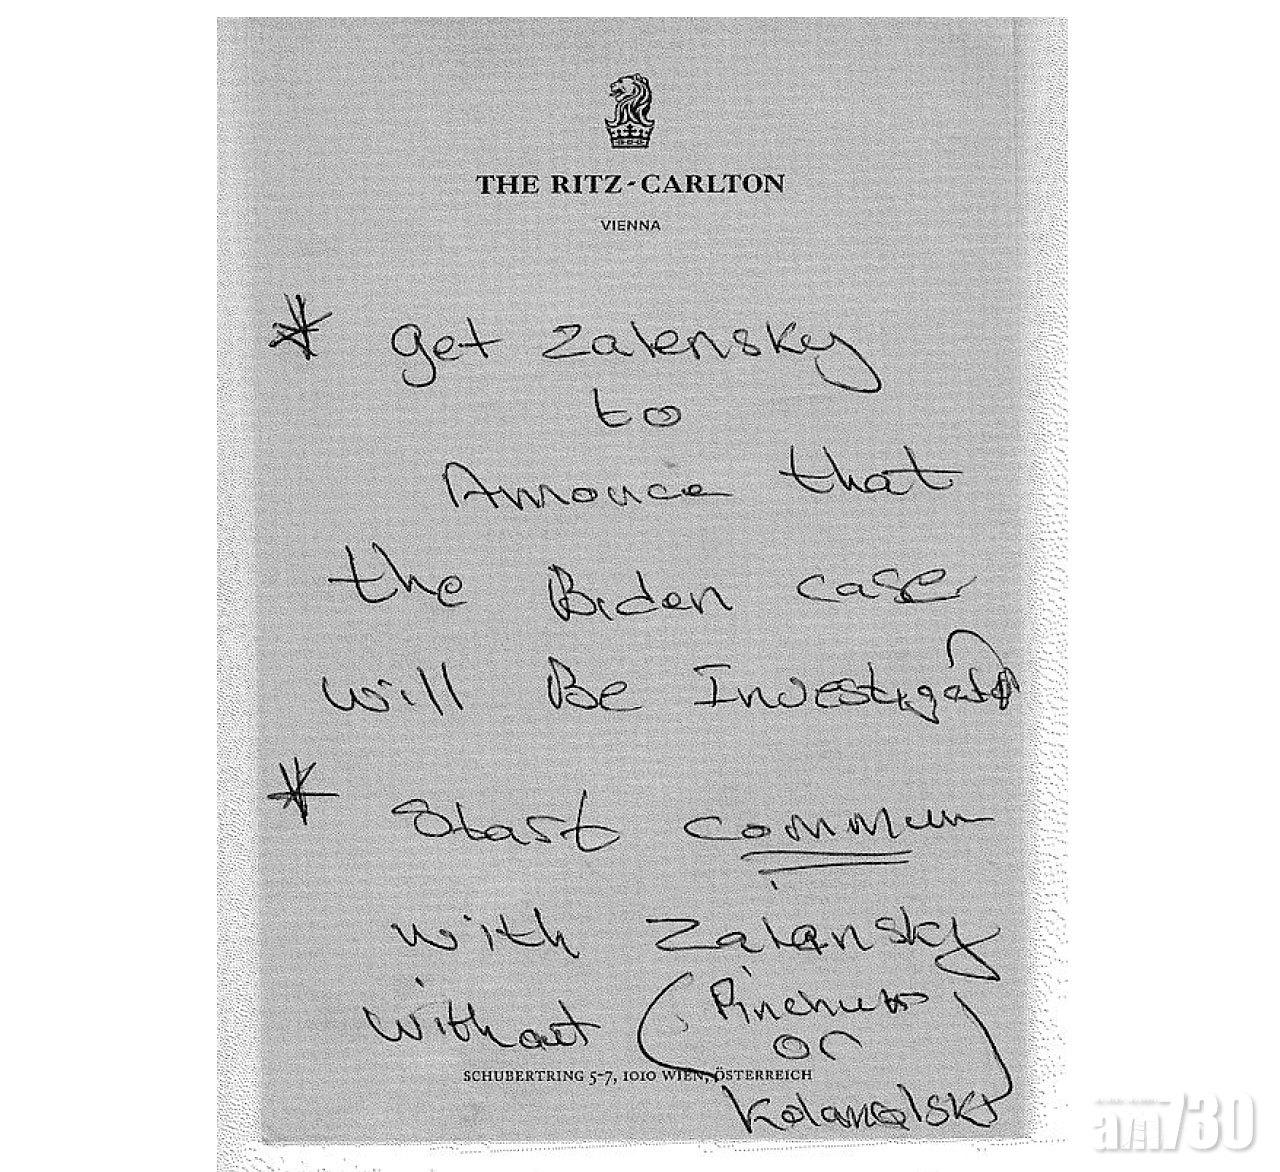 THE RITZ-CARLTON
VIENNA
* get Zalensky
to
Annouce that
the Biden case
will Be Investigated
* start commun
with Zalensky
without (Pinchuk
or
SCHUBERTRING 5-7, 1010 WIEN, ÖSTERREICH
Kolamoisky)
am730